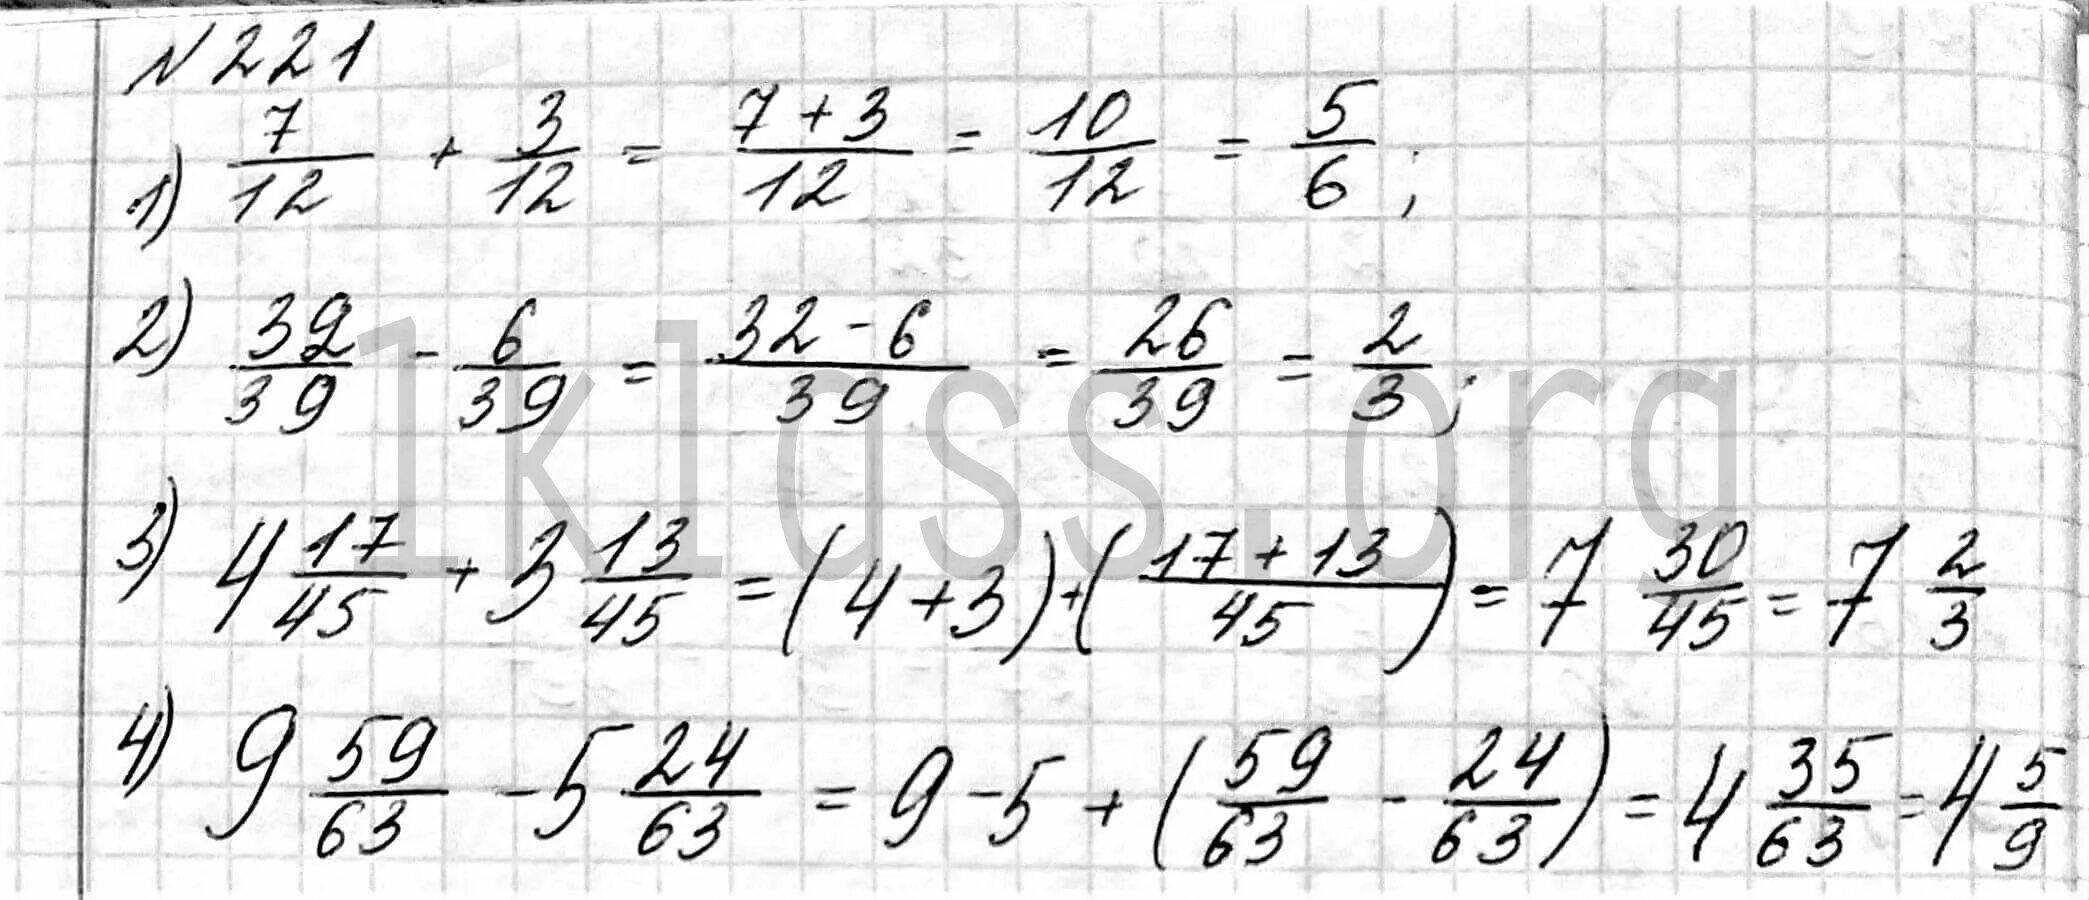 № 221
1) 7/12 + 3/12 = (7 + 3)/12 = 10/12 = 5/6;
2) 32/39 - 6/39 = (32 - 6)/39 = 26/39 = 2/3;
3) 4 17/45 + 3 13/45 = (4 + 3) + ((17 + 13)/45) = 7 30/45 = 7 2/3
4) 9 59/63 - 5 24/63 = 9 - 5 + (59/63 - 24/63) = 4 35/63 = 4 5/9
1klass.org